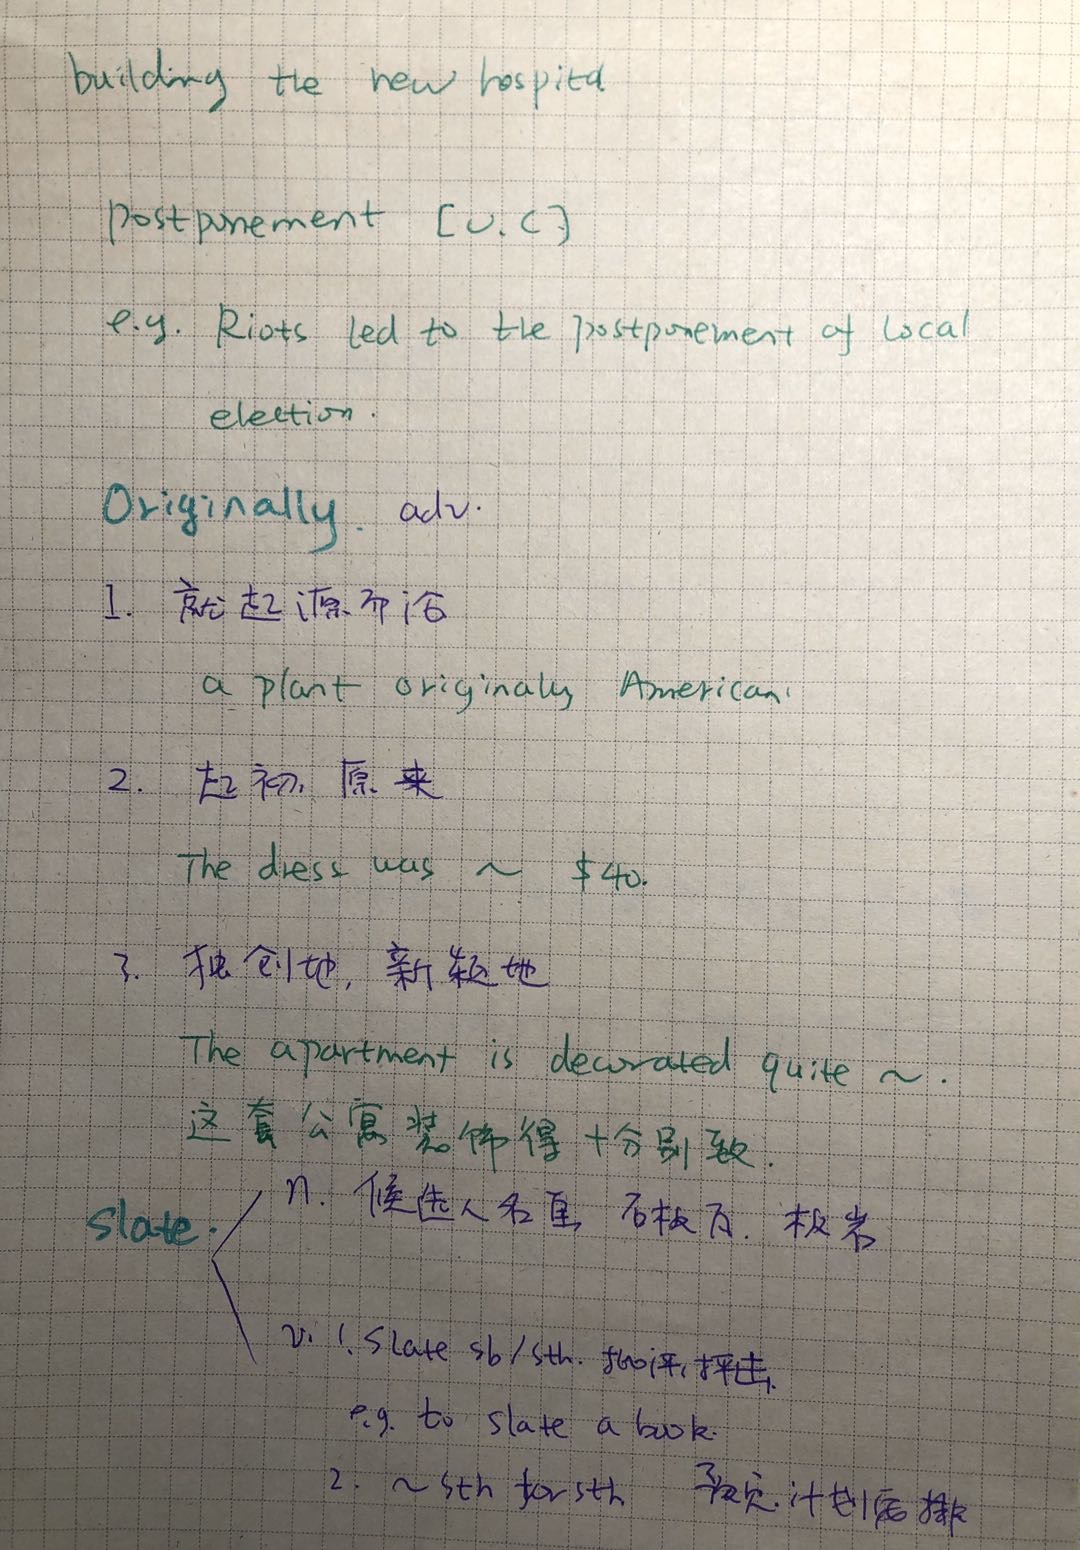 building the new hospital
postponement [U.C]
e.g. Riots led to the postponement of local
election.
Originally. adv.
1. 就起源而论
a plant originally American.
2. 起初, 原来
The dress was ~ $40.
3. 独创地, 新颖地
The apartment is decorated quite ~.
这套公寓装饰得十分别致.
slate. n. 候选人名单 石板瓦. 板岩
v. 1. Slate sb/sth. 批评, 抨击,
e.g. to slate a book.
2. ~ sth for sth 预定. 计划安排